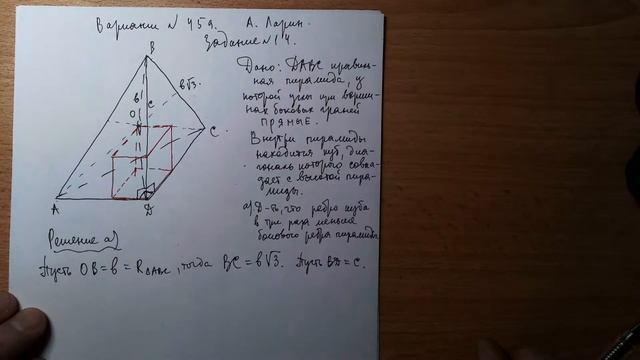 Вариант № 459. А. Ларин.
Задание № 14.
Дано: DABC правиль-
ная пирамида, у
которой углы при верши-
нах боковых граней
ПРЯМЫЕ.
Внутри пирамиды
находится куб, диа-
гональ которого совпа-
дает с высотой пира-
миды.
а) Д-ть, что ребро куба
в три раза меньше
бокового ребра пирамиды
B
b√3.
b
c
O
C.
A
D
Решение а)
Пусть OB = b = R△ABC, тогда BC = b√3. Пусть BD = C.